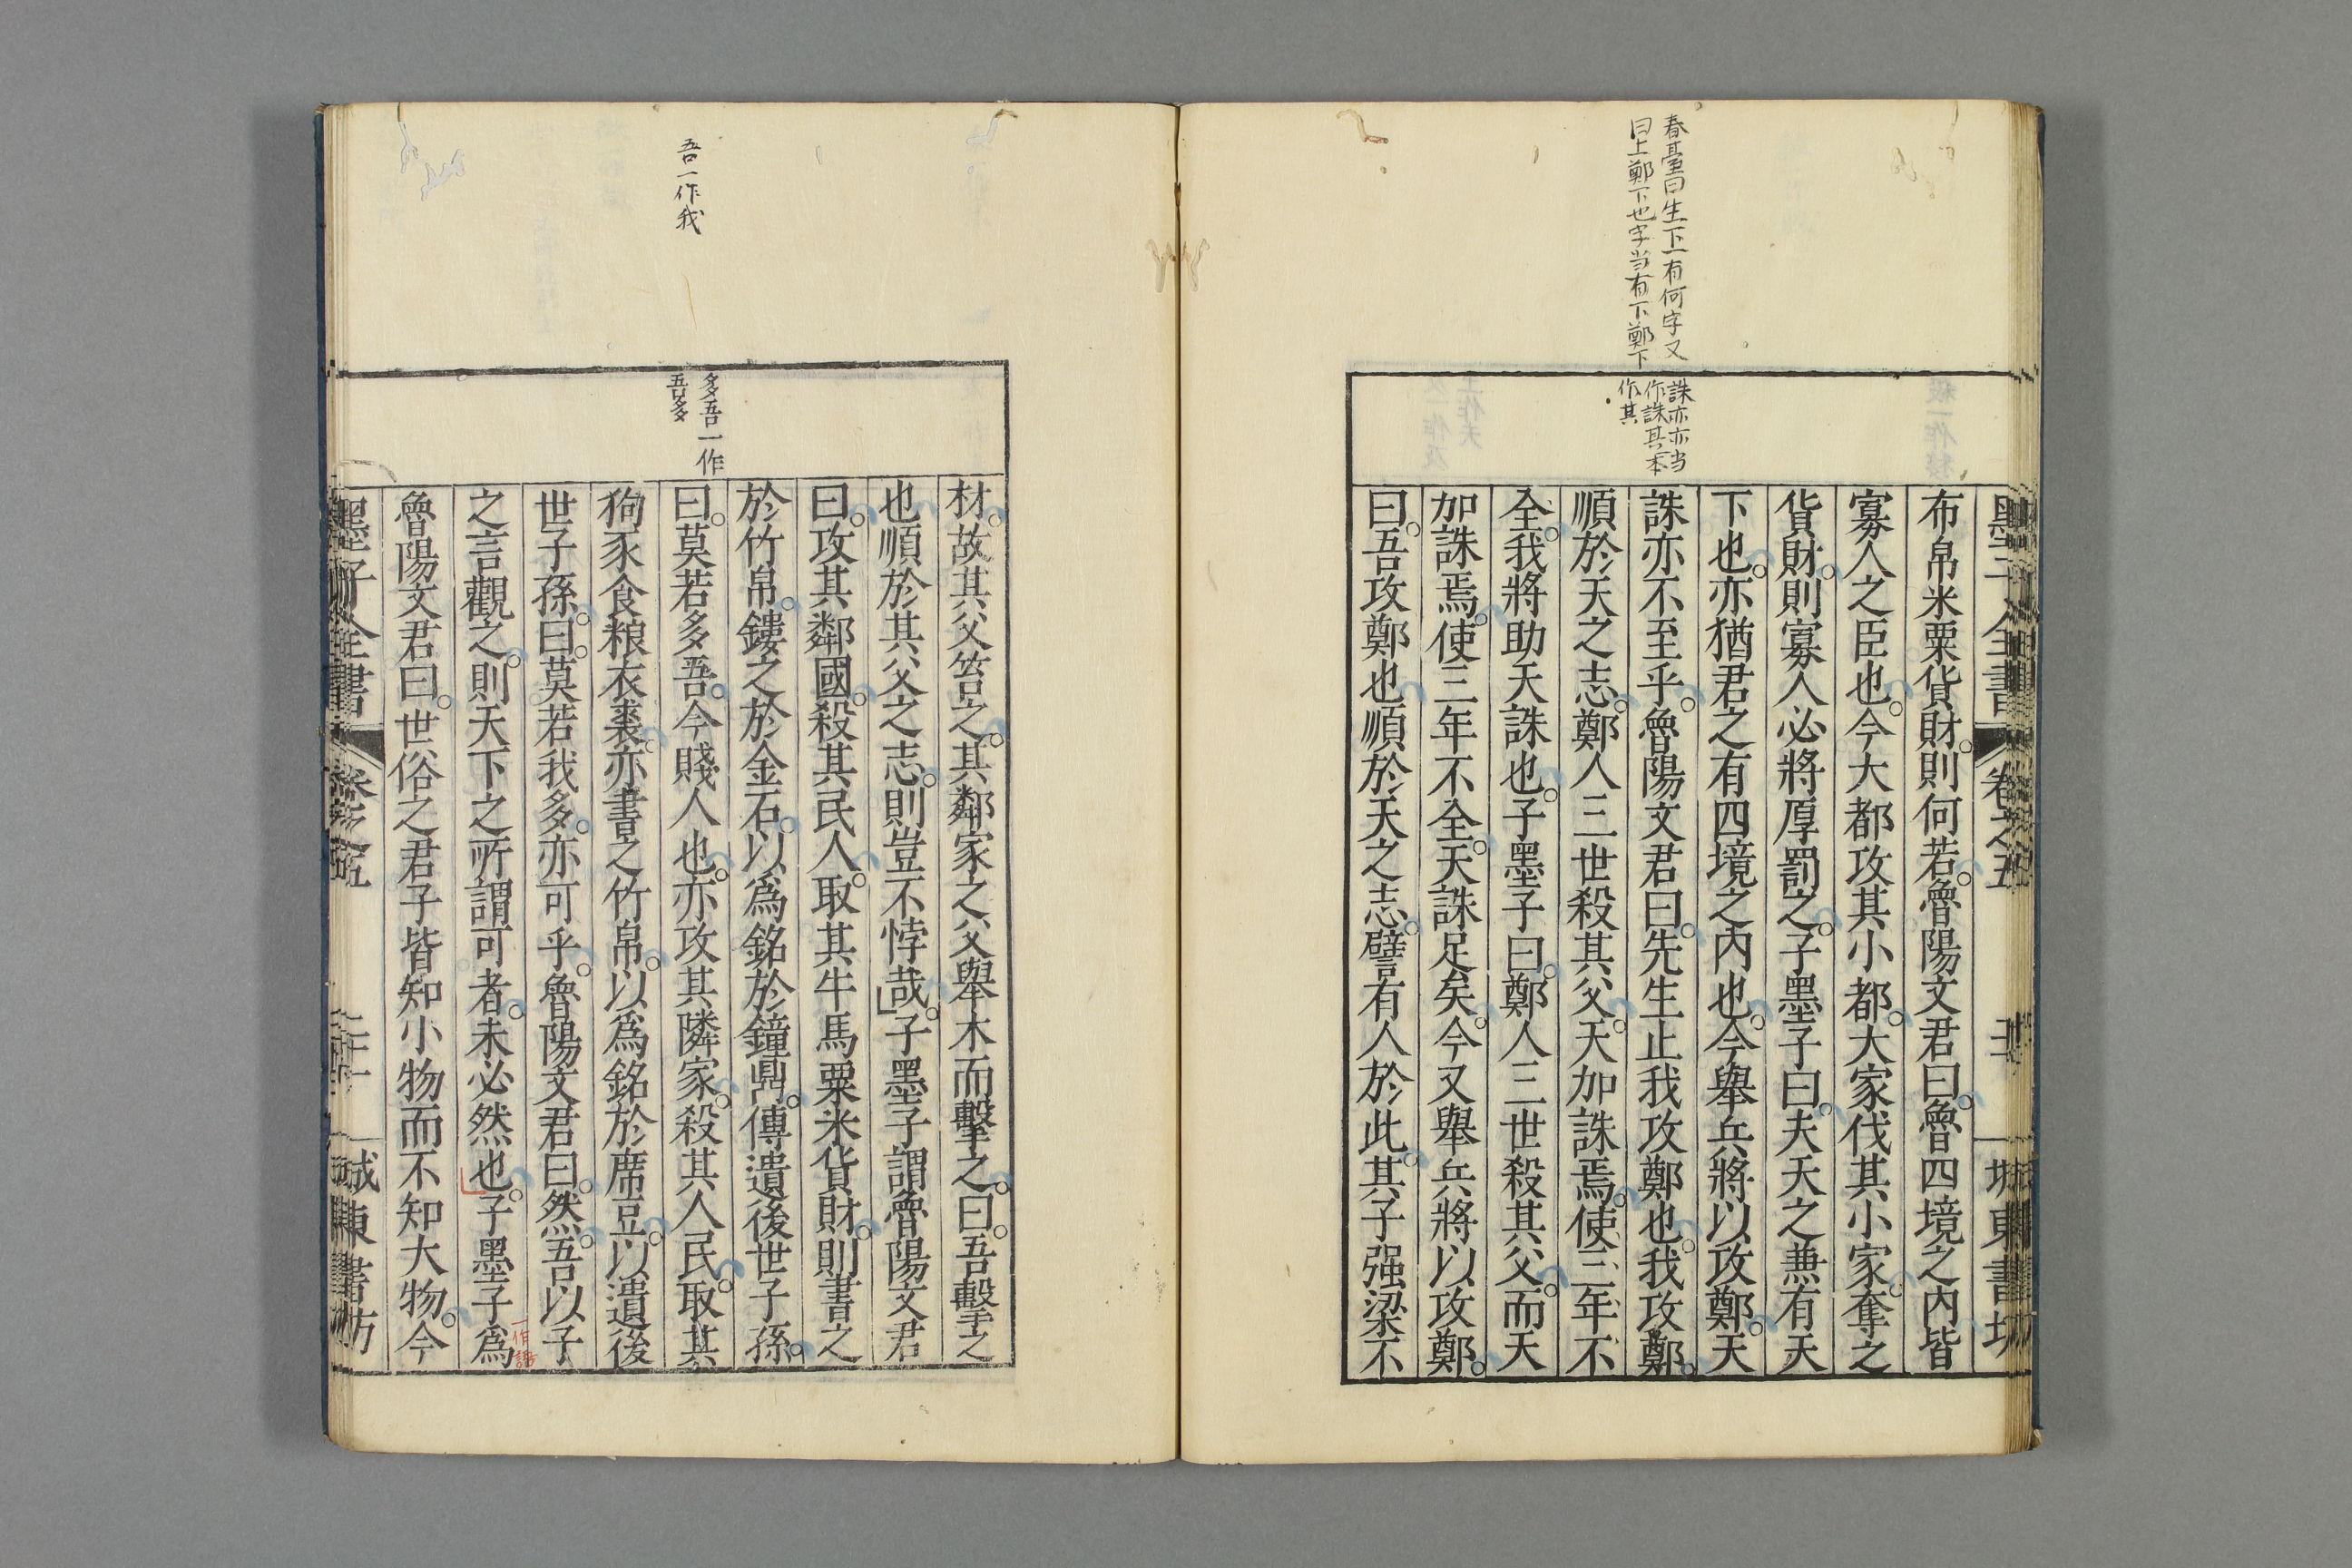 春臺曰生下一有何字又
曰上鄭下也字当有下鄭下
誅亦亦当
作誅其一本
作其
布帛米粟貨財。則何若。魯陽文君曰。魯四境之內皆
寡人之臣也。今大都攻其小都。大家伐其小家。奪之
貨財。則寡人必將厚罰之。子墨子曰。夫天之兼有天
下也。亦猶君之有四境之內也。今舉兵將以攻鄭。天
誅亦不至乎。魯陽文君曰。先生止我攻鄭也。我攻鄭。
順於天之志。鄭人三世殺其父。天加誅焉。使三年不
全。我將助天誅也。子墨子曰。鄭人三世殺其父。而天
加誅焉。使三年不全。天誅足矣。今又舉兵將以攻鄭。
曰。吾攻鄭也順於天之志。譬有人於此。其子强梁不
吾一作我
多吾一作
吾多
材。故其父笞之。其鄰家之父舉木而擊之。曰。吾擊之
也順於其父之志。則豈不悖哉。子墨子謂魯陽文君
曰。攻其鄰國。殺其民人。取其牛馬粟米貨財。則書之
於竹帛。鏤之於金石。以爲銘於鐘鼎。傳遺後世子孫。
曰。莫若多吾。今賤人也。亦攻其隣家。殺其人民。取其
狗豕食粮衣裘。亦書之竹帛。以爲銘於席豆。以遺後
世子孫。曰。莫若我多。亦可乎。魯陽文君曰。然。吾以子
之言觀之。則天下之所謂可者。未必然也。子墨子爲
一作謂
魯陽文君曰。世俗之君子皆知小物而不知大物。今
墨子全書 卷之五 城東書坊